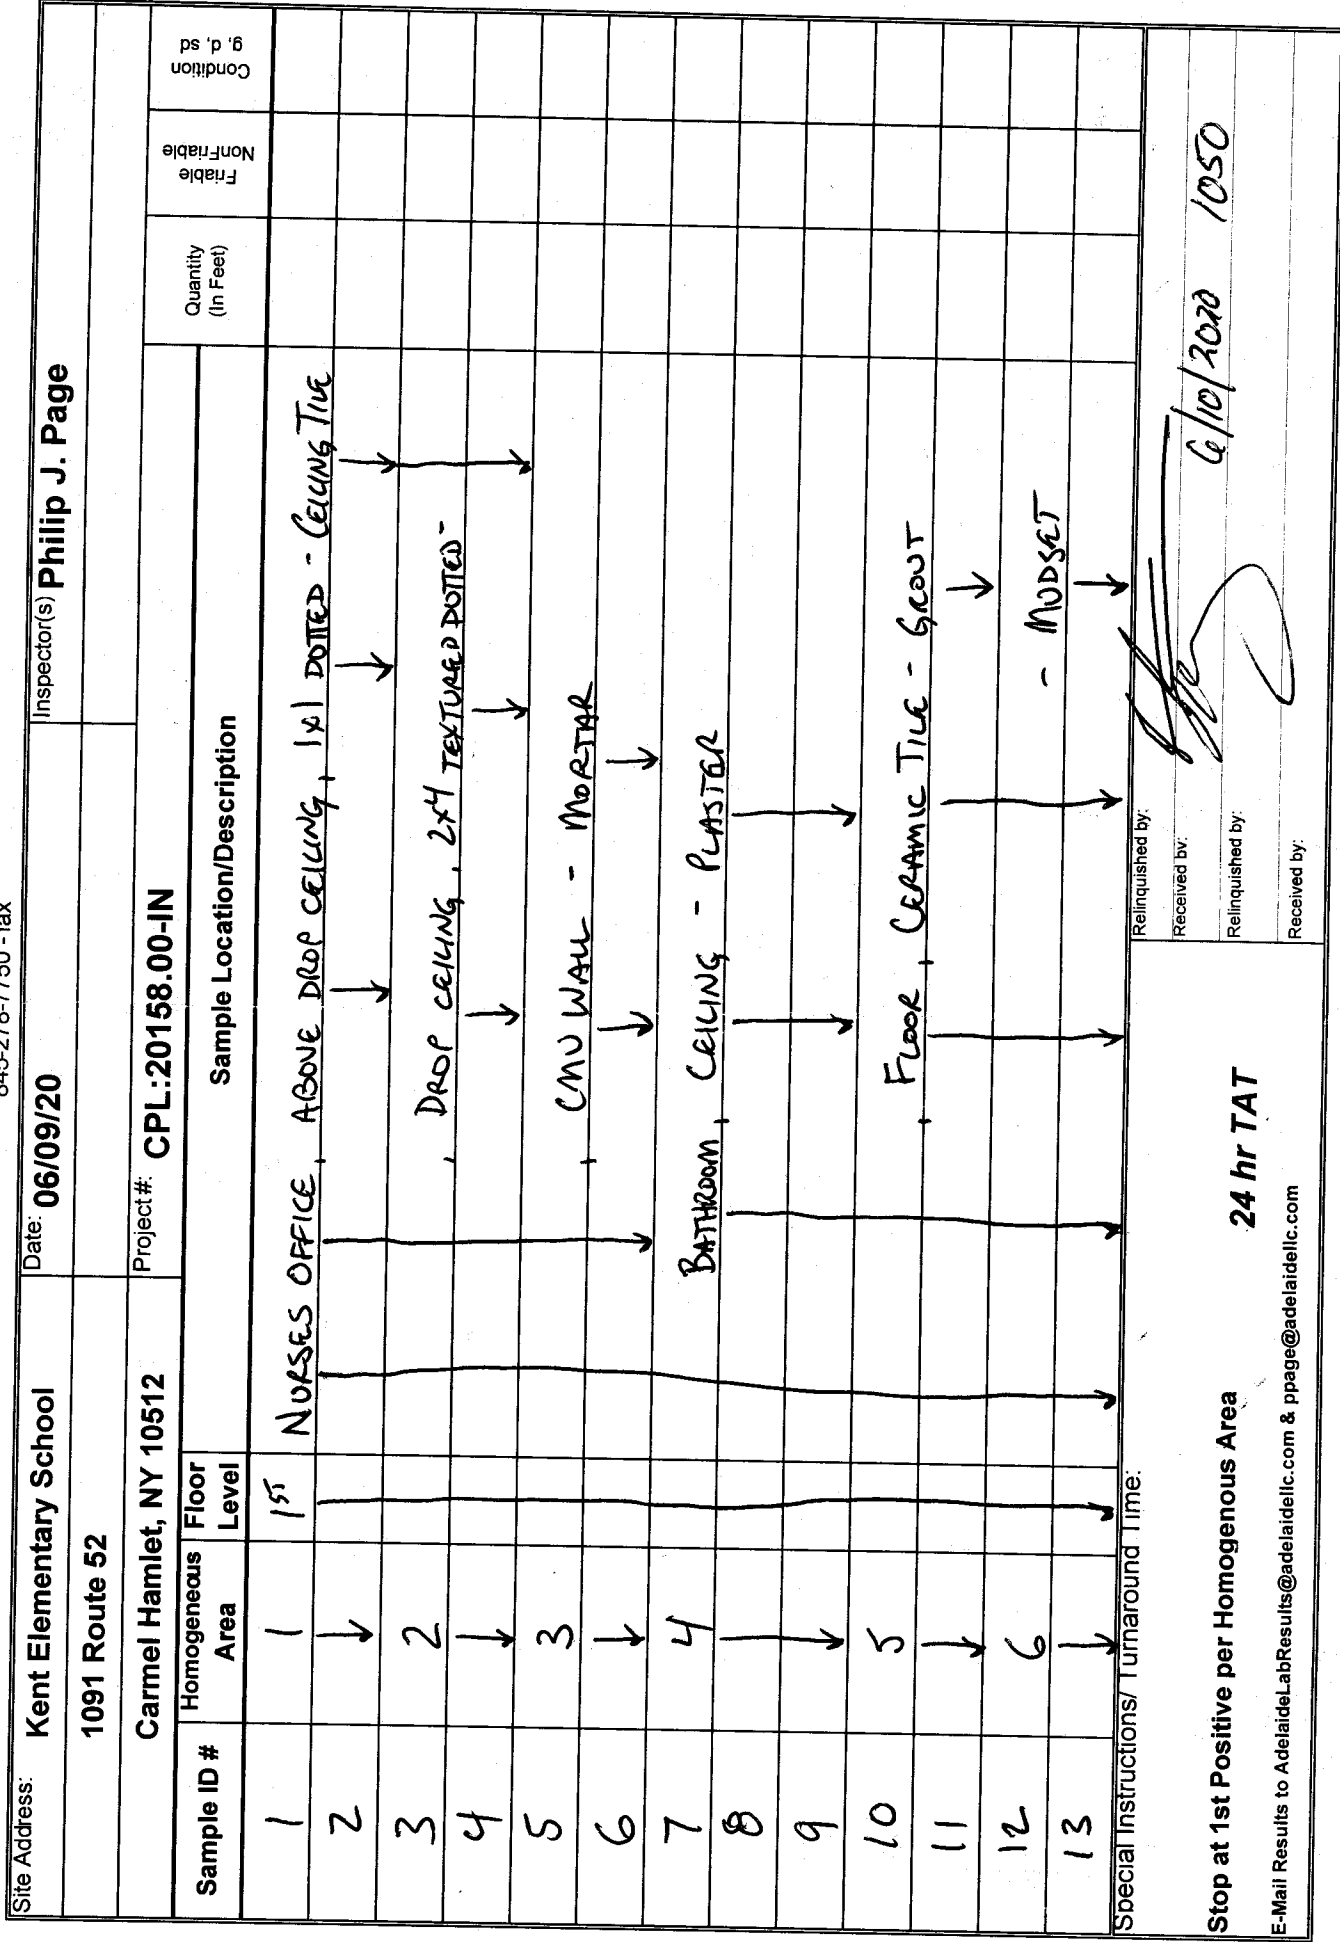 845-278-7750 -fax
Site Address: Kent Elementary School Date: 06/09/20 Inspector(s) Philip J. Page
1091 Route 52
Carmel Hamlet, NY 10512 Project #: CPL:20158.00-IN
Sample ID # Homogeneous Area Floor Level Sample Location/Description Quantity (In Feet) Friable NonFriable Condition g, d, sd
1 1 1ST NURSES OFFICE, ABOVE DROP CEILING, 1x1 DOTTED - CEILING TILE
2 ↓ ↓ ↓ ↓ ↓ ↓ ↓
3 2 , DROP CEILING, 2x4 TEXTURED DOTTED - ↓
4 ↓ ↓ ↓
5 3 , CMU WALL - MORTAR
6 ↓ ↓ ↓
7 4 BATHROOM, CEILING - PLASTER
8 ↓ ↓ ↓
9
10 5 , FLOOR, CERAMIC TILE - GROUT
11 ↓ ↓ ↓ ↓
12 6 - MUDSET
13 ↓ ↓
Special Instructions/ Turnaround Time:
Stop at 1st Positive per Homogenous Area 24 hr TAT
E-Mail Results to AdelaideLabResults@adelaidellc.com & ppage@adelaidellc.com
Relinquished by:
Received by: 6/10/2020 1050
Relinquished by:
Received by: